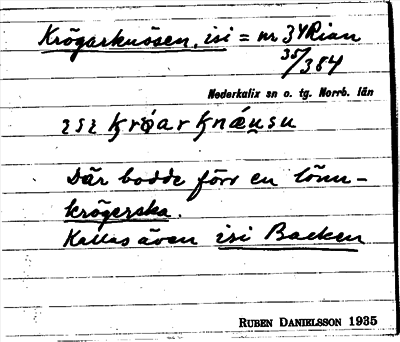 Krögarknösen, isi = nr 34 Rian
35/384
Nederkalix sn o. tg. Norrb. län
ɪsɪ kröar knæusu
Där bodde förr en lönn-
krögerska.
Kallas även isi Backen
RUBEN DANIELSSON 1935